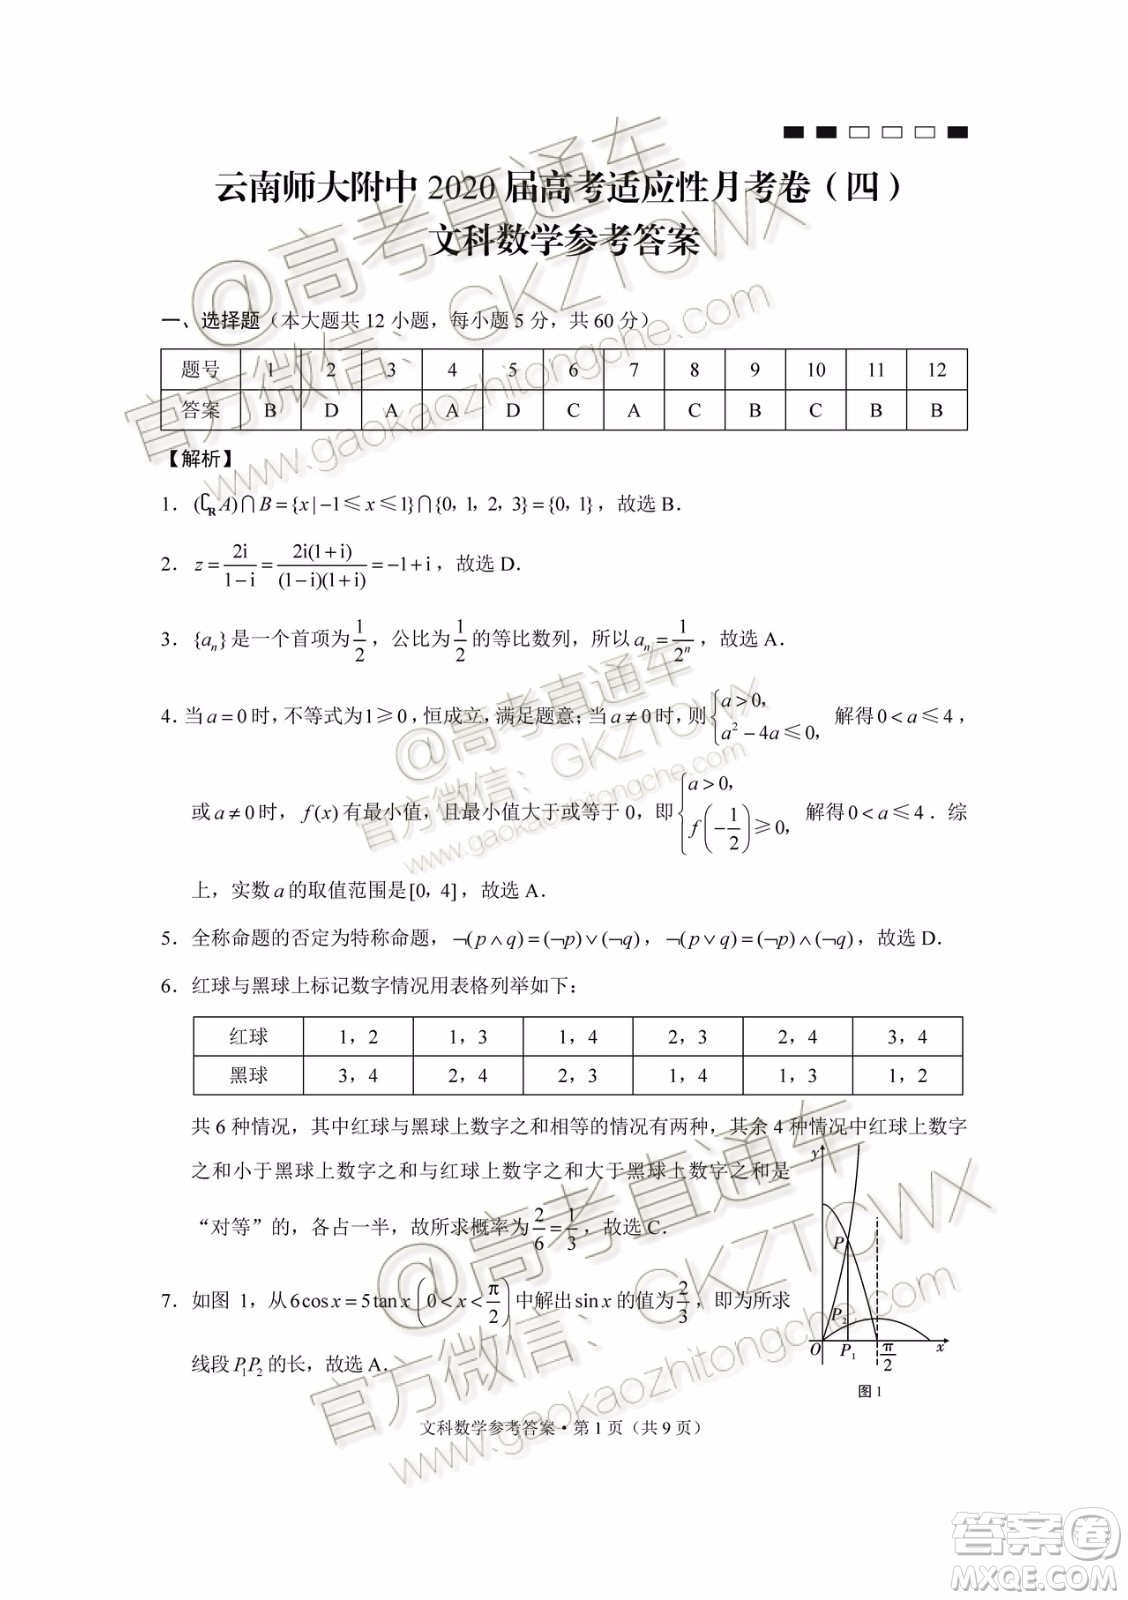 云南师大附中 2020 届高考适应性月考卷（四）
文科数学参考答案
一、选择题（本大题共 12 小题，每小题 5 分，共 60 分）
题号 1 2 3 4 5 6 7 8 9 10 11 12
答案 B D A A D C A C B C B B
【解析】
1．(∁_R A)∩B={x|−1≤x≤1}∩{0，1，2，3}={0，1}，故选 B．
2．z=2i/(1−i)=2i(1+i)/((1−i)(1+i))=−1+i，故选 D．
3．{a_n}是一个首项为1/2，公比为1/2的等比数列，所以a_n=1/2^n，故选 A．
4．当a=0时，不等式为1≥0，恒成立，满足题意；当a≠0时，则{a>0，a²−4a≤0，解得0<a≤4，
或a≠0时，f(x)有最小值，且最小值大于或等于 0，即{a>0，f(−1/2)≥0，解得0<a≤4．综
上，实数a的取值范围是[0，4]，故选 A．
5．全称命题的否定为特称命题，¬(p∧q)=(¬p)∨(¬q)，¬(p∨q)=(¬p)∧(¬q)，故选 D．
6．红球与黑球上标记数字情况用表格列举如下：
红球 1，2 1，3 1，4 2，3 2，4 3，4
黑球 3，4 2，4 2，3 1，4 1，3 1，2
共 6 种情况，其中红球与黑球上数字之和相等的情况有两种，其余 4 种情况中红球上数字
之和小于黑球上数字之和与红球上数字之和大于黑球上数字之和是
“对等”的，各占一半，故所求概率为2/6=1/3，故选 C．
7．如图 1，从6cosx=5tanx(0<x<π/2)中解出sinx的值为2/3，即为所求
线段P₁P₂的长，故选 A．
y
P
P₂
O P₁ π/2 x
图 1
文科数学参考答案·第 1 页（共 9 页）
@高考直通车
官方微信：GKZTCWX
www.gaokaozhitongche.com
@高考直通车
官方微信：GKZTCWX
www.gaokaozhitongche.com
@高考直通车
官方微信：GKZTCWX
www.gaokaozhitongche.com
答案卷
MXQE.COM